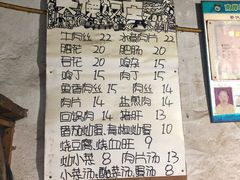 牛肉丝 22 水煮肉片 22
腰花 20 肥肠 20
肚花 20 鸡杂 15
鸡丁 15 肉丁 15
鱼香肉丝 15 肉丝 14
肉片 14 盐煎肉 14
回锅肉 14 猪肝 13
番茄炒蛋、青椒炒蛋 10
烧豆腐、烧血旺 9
炒小菜 8 肉片汤 13
小菜汤、酸菜汤、蛋汤 8